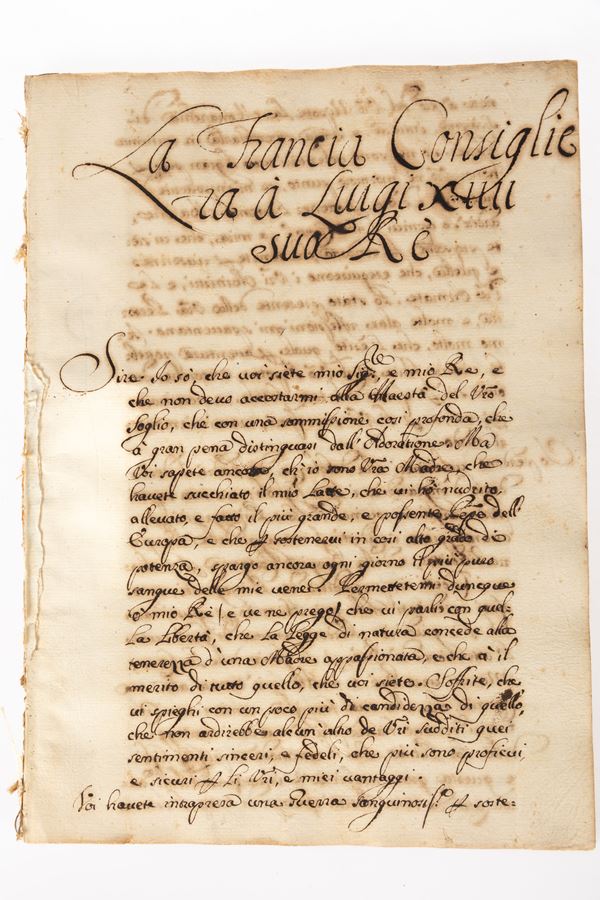 La Francia Consiglie
ra à Luigi XIIII
suo Rè
Sire. Io sò, che voi siete mio Sig.re, e mio Rè, e
che non devo accostarmi alla Maestà del Vr̃o
soglio, che con una sommissione così profonda, che
à gran pena distinguasi dall'Adoratione. Ma
Voi sapete ancora, ch'io sono Vr̃a Madre, che
havete succhiato il mio Latte, che vi hò nudrito,
allevato, e fatto il più grande, e possente Rege dell'
Europa, e che p sostenervi in così alto grado di
potenza, spargo ancora ogni giorno il più puro
sangue delle mie vene. Permettetemi dunque
ò mio Rè, e ve ne prego, che vi parli con quel-
la Libertà, che la Legge di natura concede alla
tenerezza d'una Madre appassionata, e che à il
merito di tutto quello, che voi siete. Soffrite, che
vi spieghi con un poco più di candidezza di quello,
che non ardirebbe alcun'altro de Vr̃i sudditi quei
sentimenti sinceri, e fedeli, che più sono proficui,
e sicuri p li Vr̃i, e miei vantaggi.
Voi havete intrapresa una Guerra sanguinosis.a p soste-